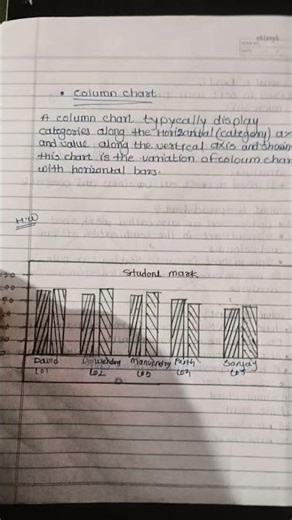 • Column chart
A column chart typycally display
categories along the Horizantal (category) ax
and value along the vertrcal axis and showin
this chart is the variation of coloum char
with horizontal bars.
H.W
Student mark
David
Manvendry
Parth
Sanjay